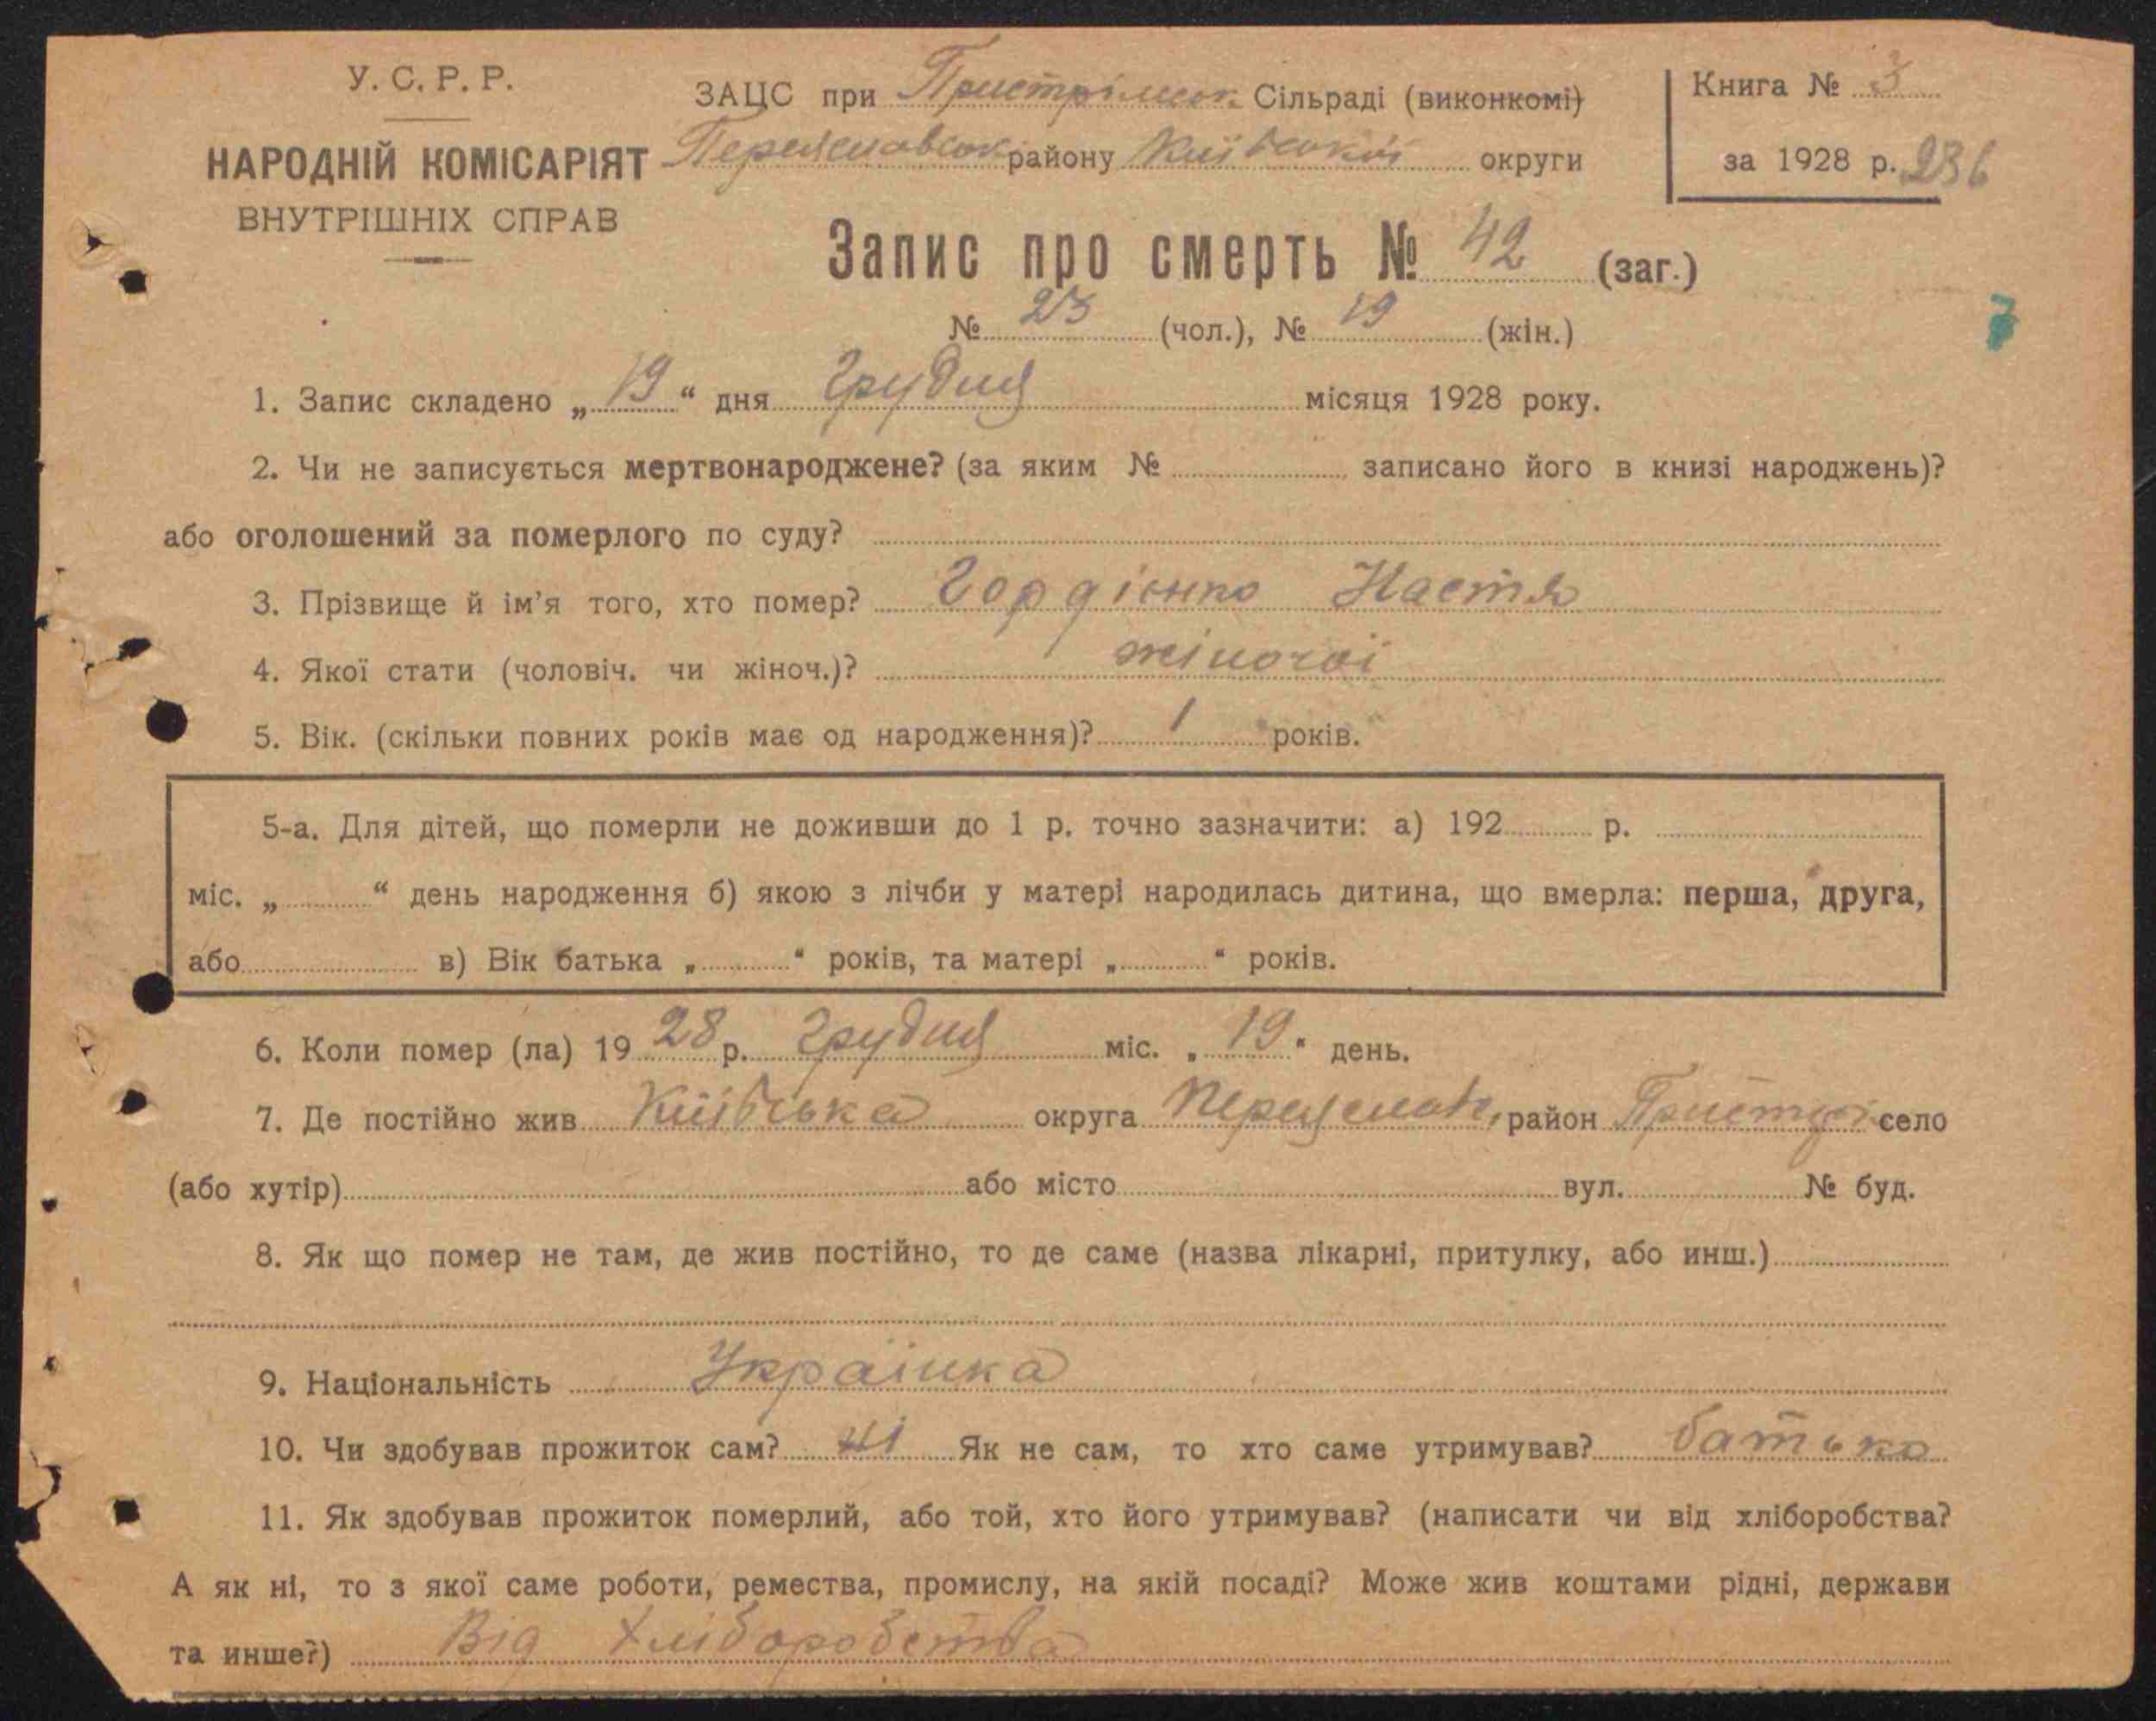 У. С. Р. Р.
НАРОДНІЙ КОМІСАРІЯТ
ВНУТРІШНІХ СПРАВ
ЗАЦС при Пристромськ. Сільраді (виконкомі)
Переяславськ району Київської округи
Книга № 3
за 1928 р. 236
Запис про смерть № 42 (заг.)
№ 23 (чол.), № 19 (жін.)
1. Запис складено „ 19 “ дня Грудня місяця 1928 року.
2. Чи не записується мертвонароджене? (за яким № записано його в книзі народжень)?
або оголошений за померлого по суду?
3. Прізвище й ім'я того, хто помер? Гордієнко Настя
4. Якої стати (чоловіч. чи жіноч.)? жіночої
5. Вік. (скільки повних років має од народження)? 1 років.
5-а. Для дітей, що померли не доживши до 1 р. точно зазначити: а) 192 р.
міс. „ “ день народження б) якою з лічби у матері народилась дитина, що вмерла: перша, друга,
або в) Вік батька „ “ років, та матері „ “ років.
6. Коли помер (ла) 19 28 р. Грудня міс. „ 19 “ день.
7. Де постійно жив Київська округа Переяслав, район Пристр село
(або хутір) або місто вул. № буд.
8. Як що помер не там, де жив постійно, то де саме (назва лікарні, притулку, або инш.)
9. Національність Українка
10. Чи здобував прожиток сам? ні Як не сам, то хто саме утримував? батько
11. Як здобував прожиток померлий, або той, хто його утримував? (написати чи від хліборобства?
А як ні, то з якої саме роботи, ремества, промислу, на якій посаді? Може жив коштами рідні, держави
та инше?) Від Хліборобства